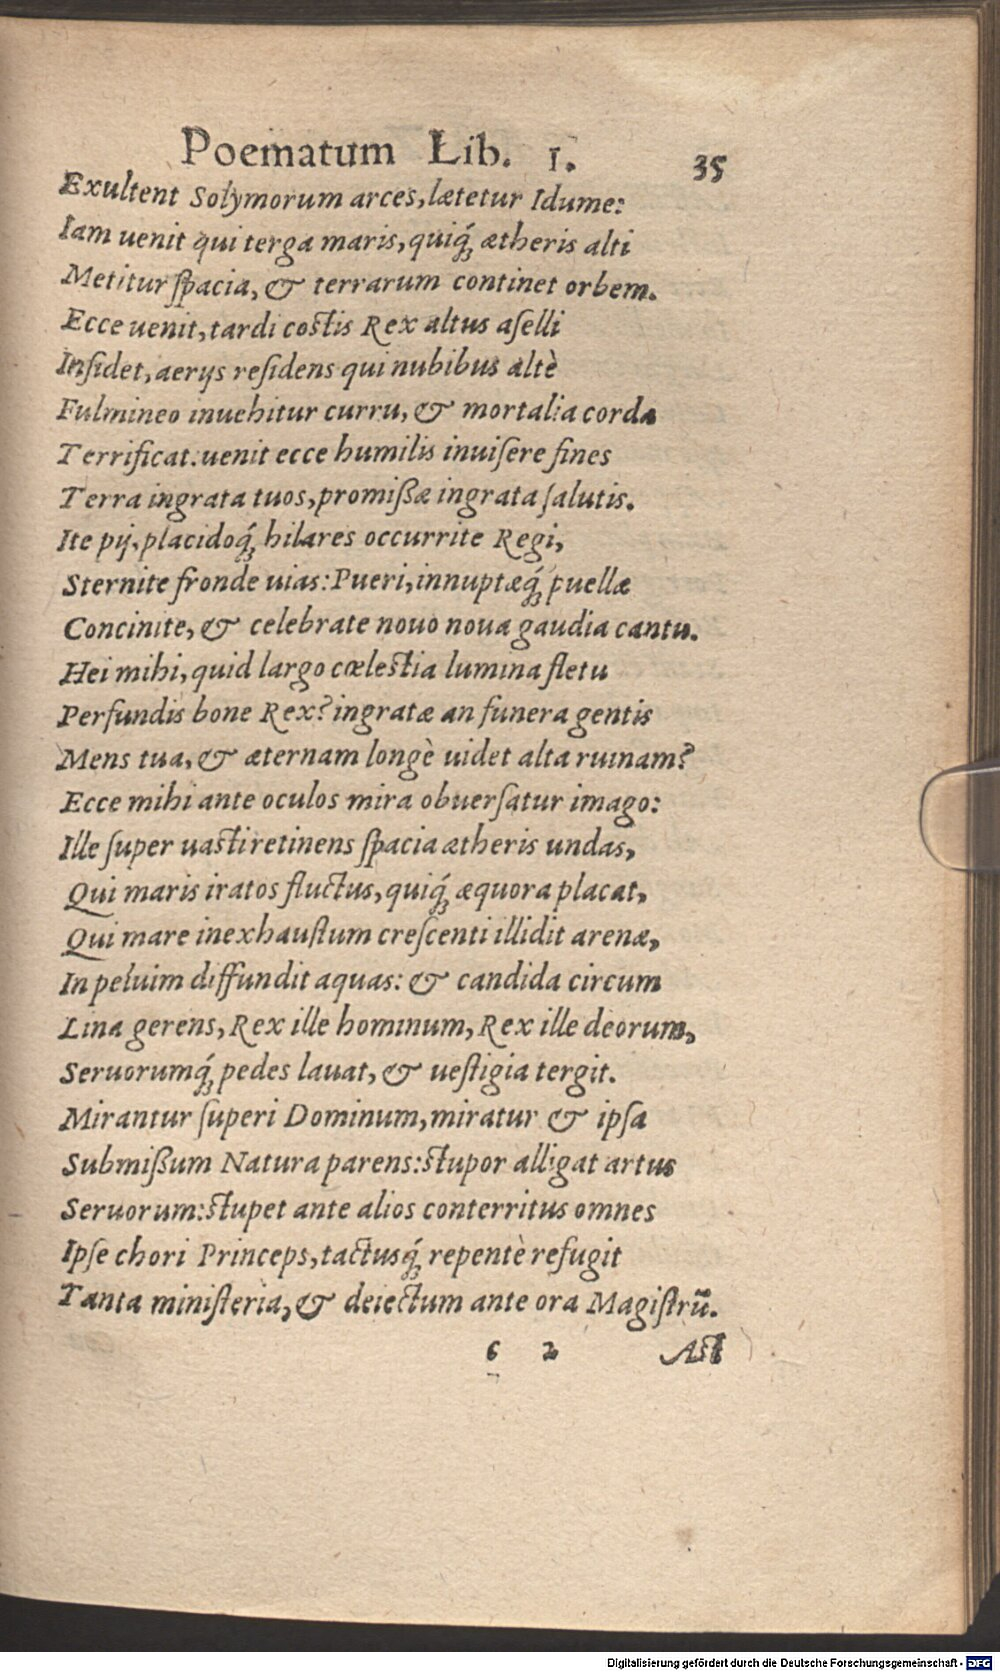 Poematum Lib. 1. 35
Exultent Solymorum arces, lætetur Idume:
Iam uenit qui terga maris, quiq́; ætheris alti
Metitur ſpacia, & terrarum continet orbem.
Ecce uenit, tardi costis Rex altus aſelli
Inſidet, aerijs reſidens qui nubibus altè
Fulmineo inuehitur curru, & mortalia corda
Terrificat: uenit ecce humilis inuiſere fines
Terra ingrata tuos, promiſſæ ingrata ſalutis.
Ite pij, placidoq́; hilares occurrite Regi,
Sternite fronde uias: Pueri, innuptæq́; puellæ
Concinite, & celebrate nouo noua gaudia cantu.
Hei mihi, quid largo cœlestia lumina fletu
Perfundis bone Rex? ingratæ an funera gentis
Mens tua, & æternam longè uidet alta ruinam?
Ecce mihi ante oculos mira obuerſatur imago:
Ille ſuper uasti retinens ſpacia ætheris undas,
Qui maris iratos fluctus, quiq́; æquora placat,
Qui mare inexhauſtum creſcenti illidit arenæ,
In peluim diffundit aquas: & candida circum
Lina gerens, Rex ille hominum, Rex ille deorum,
Seruorumq́; pedes lauat, & ueſtigia tergit.
Mirantur ſuperi Dominum, miratur & ipſa
Submiſſum Natura parens: stupor alligat artus
Seruorum: stupet ante alios conterritus omnes
Ipſe chori Princeps, tactusq́; repentè refugit
Tanta miniſteria, & deiectum ante ora Magiſtrū.
6 2 Ast
Digitalisierung gefördert durch die Deutsche Forschungsgemeinschaft - DFG